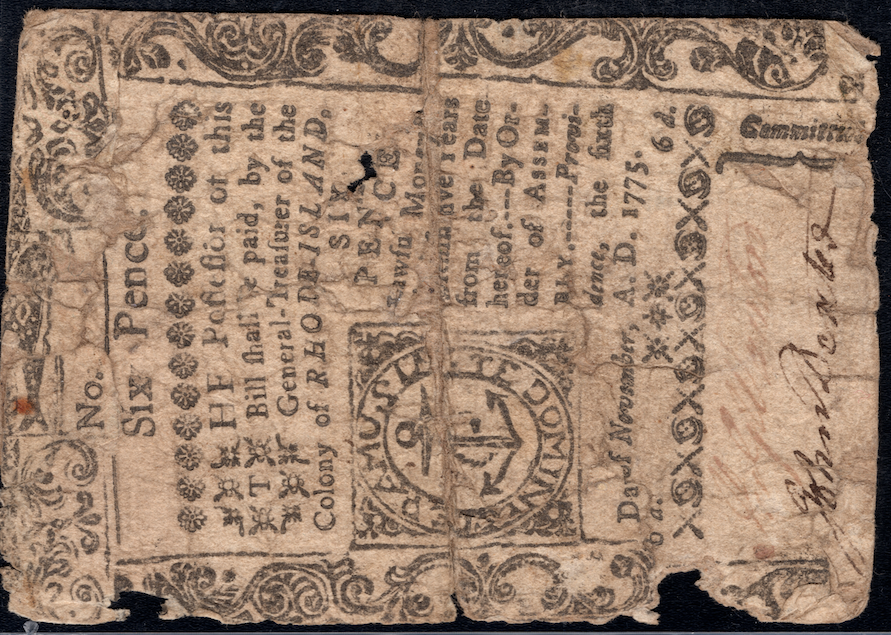 No.
Six Pence.
THE Possessor of this
Bill shall be paid, by the
General-Treasurer of the
Colony of RHODE-ISLAND,
SIX
PENCE
Lawful Money,
within five Years
from the Date
hereof.—By Or-
der of ASSEM-
BLY.—Provi-
dence, the sixth
Day of November, A. D. 1775.
6 d. 6 d.
IN TE DOMINE
Committee
John Dexter